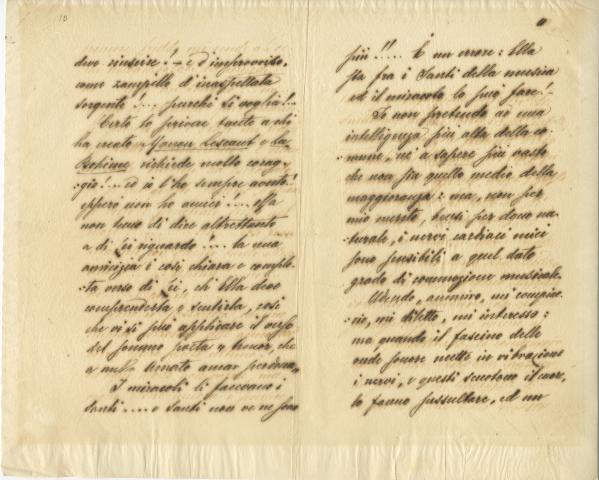 10
deve riuscire! – e d'improvviso,
come zampillo d'inaspettata
sorgente!... purché si voglia!..
Certo lo scrivere tanto a chi
ha creato Manon Lescaut e La
Bohème richiede molto corag-
gio!... ed io l'ho sempre avuto!
eppure non ho amici!... Ma
non temo di dire altrettanto
a di Lei riguardo!... la mia
amicizia è così chiara e comple-
ta verso di Lei, ch'Ella deve
comprenderla e sentirla, così
che vi si può applicare il verso
del sommo poeta "Amor, che
a nullo amato amar perdona"
I miracoli li facevano i
Santi.... e Santi non ve ne sono
11
più!!... È un errore: Ella
sta fra i Santi della musica
ed il miracolo lo può fare!..
Io non pretendo ad una
intelligenza più alta della co-
mune, né a sapere più vasto
che non sia quello medio della
maggioranza: ma, non per
mio merito, bensì per dono na-
turale, i nervi cardiaci miei
sono sensibili a quel dato
grado di commozione musicale.
Udendo, ammiro, mi compiac-
cio, mi diletto, mi interesso:
ma quando il fascino delle
onde sonore mette in vibrazione
i nervi, e questi scuotono il cuor,
lo fanno sussultare, ed un